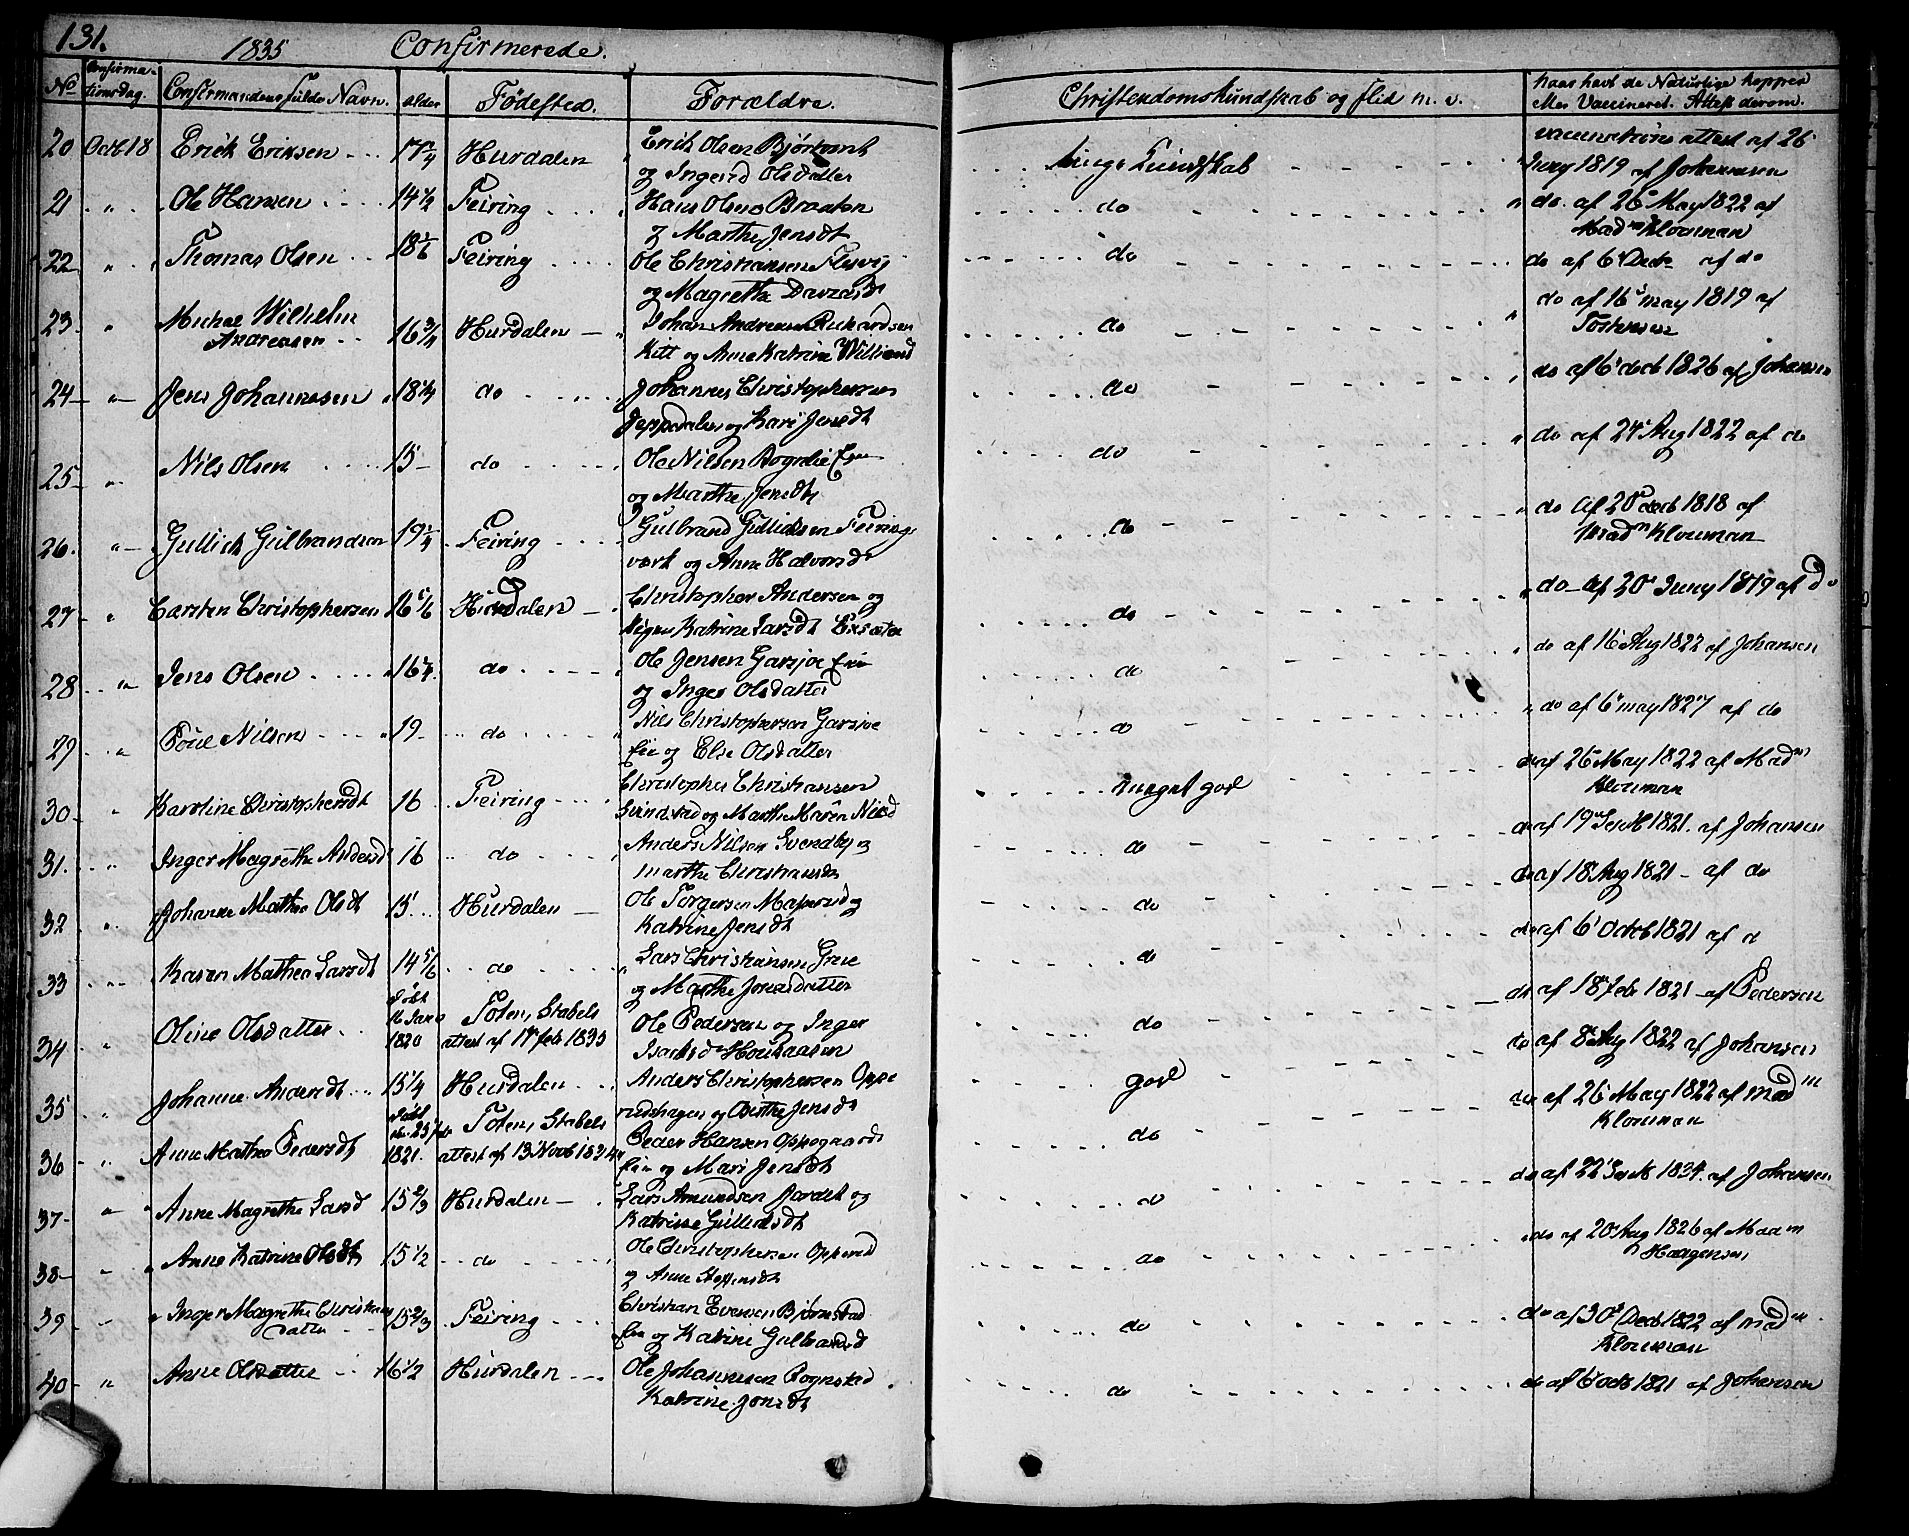 131.
1835 Confirmerede.
No Confirma-tionsdag. Confirmandens fulde Navn. alder Fødested. Forældre. Christendomskundskab og flid m. v. haar havt de Naturlige kopper Eller Vaccineret. Attest derom.
20 Octb 18 Erick Eriksen 17 1/4 Hurdalen Erick Olsen vaccinations attest af 26
og Ingered Olsdatter Kundskab Juny 1819 af Johannsen
21 " Ole Hansen 14 1/2 Feiring Hans Olsen Braaten do " do. af 26 May 1822 af
og Marthe Jensdt Madm Klouman
22 " Thomas Olsen 18 1/6 Feiring Ole Christiansen do do af 6 af do
og Magrethe
23 " Michael Wilhelm Andreasen 16 3/4 Hurdalen Johan Andreas Richardsen do " do af 16 may 1819 af
Kitt og Anne Katrine
24 " Jens Johannesen 18 1/4 do Johannes Christophersen do do af 6 octb 1826 af Johansen
Jeppedalen og Kari Jensdt
25 " Nils Olsen 15 do Ole Nilsen Rognlie Eie do " do af 24 Aug 1822 af do
og Marthe Jensdt
26. " Gullich Gulbrandsen 19 1/4 Feiring Gulbrand Gullichsen Feirings do " do af 20 octb 1818 af
værk og Anne Halvorsdt Madm Klouman
27 " Carsten Christophersen 16 5/6 Hurdalen Christopher Andersen og do " do af 20 Juny 1819 af Do
Katrine Larsdt
28 " Jens Olsen 16 1/4 do Ole Jensen Garsjøe Eie do " do af 16 Aug 1822 af Johansen
og Inger Olsdatter
29 " Poul Nilsen 19 do Nils Christophersen Garsjøe do " do af 6 may 1827 af do
Eie og Else Olsdatter
30 " Karoline Christophersdt 16 Feiring Christopher Christiansen meget god do af 26 May 1822 af Madm
og Marthe Maren Nilsd Klouman
31. " Inger Magrethe Andersd 16 do Anders Nilsen Svendby og do do af 19 Septb 1821. af Johansen
Marthe Christiansdt
32 " Johanne Mathea Olsdt 15 Hurdalen Ole Torgersen og do do af 18 Aug 1821 af do
Katrine Jensdt
33 " Karen Mathea Larsdt 14 5/6 do Lars Christiansen do do af 6 Octb 1821 af d
og Marthe Jonasdatter
34 " Oline Olsdatter født 16 1820 Toten, Stabels Ole Pedersen og Inger do do af 18 feb 1821 af Pedersen
attest af 17 feb 1835
35 " Johanne Andersdt 15 1/4 Hurdalen Anders Christophersen Oppe god do af 8 Aug 1822 af Johansen
rudshagen og Birthe Jensdt
36 " Anne Mathea Pedersdt født 1821. Toten, Stabels Peder Hansen Oppegaards do do af 26 May 1822 af Madm
attest af 13 Novb Eie og Mari Jensdt Klouman
37 " Anne Magrethe Larsd 15 2/3 Hurdalen Lars Amundsen og do do af 22 Septb 1834. af Johansen
Katrine Gullichsdt
38 " Anne Katrine Olsdt 15 1/2 do Ole Christophersen Opperud do do af 20 Aug 1826 af Madm
og Anne Haagensen
39 " Inger Magrethe Christians datter 15 2/3 Feiring Christian Evensen Bjørnstad do do af 30 Decb 1822 af madm
Eie og Katrine Gulbrandsd Klouman
40 " Anne Olsdatter 16 1/2 Hurdalen Ole Johannesen Rognstad do do af 6 octb 1821 af Johansen
Katrine Jonsdt